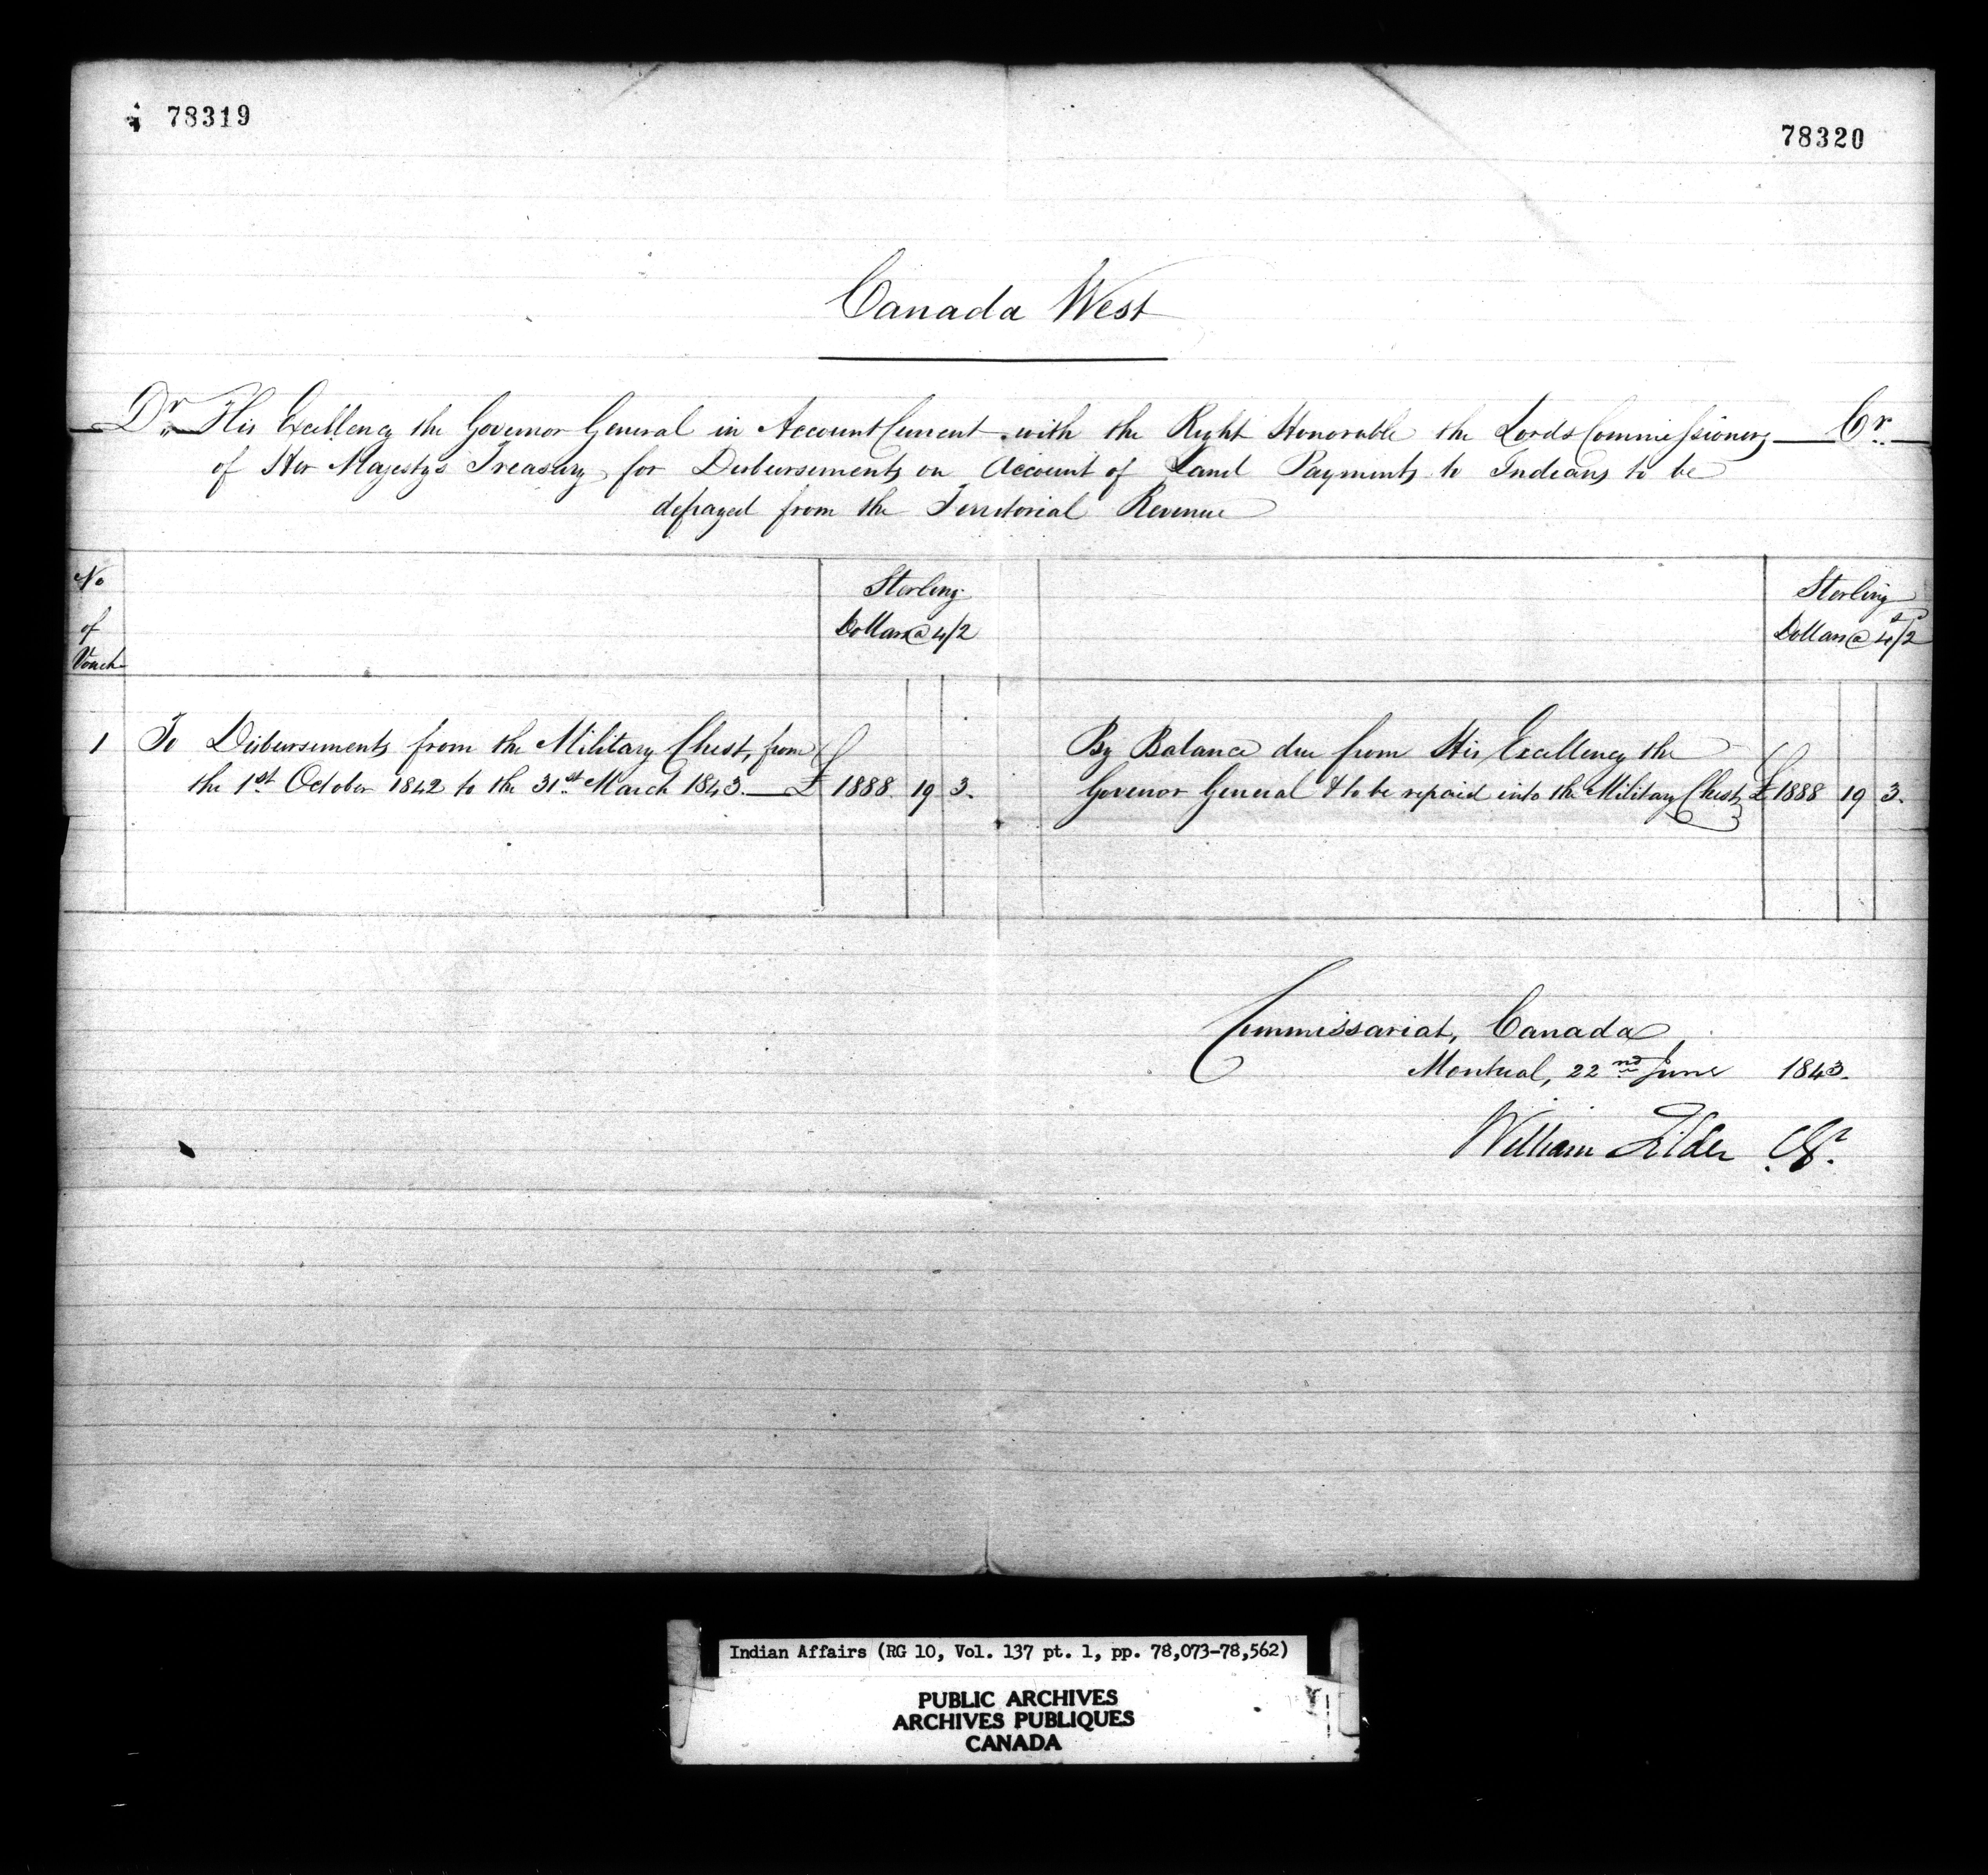 78319
78320
Canada West
Dr. His Excellency the Governor General in Account Current with the Right Honorable the Lords Commissioners Cr.
of Her Majestys Treasury for Disbursements on Account of Land Payments to Indians to be
defrayed from the Territorial Revenue
No of Vouch
Sterling Dollars @ 4/2
Sterling Dollars @ 4s/2d
1 To Disbursements from the Military Chest, from
the 1st October 1842 to the 31st March 1843. £ 1888 19 3.
By Balance due from His Excellency the
Govenor General & to be repaid into the Military Chest £ 1888 19 3.
Commissariat, Canada,
Montreal, 22nd June 1843.
William Filder
Indian Affairs (RG 10, Vol. 137 pt. 1, pp. 78,073-78,562)
PUBLIC ARCHIVES
ARCHIVES PUBLIQUES
CANADA